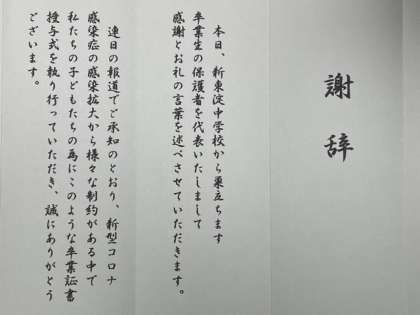 謝辞
本日、新東淀中学校から巣立ちます
卒業生の保護者を代表いたしまして
感謝とお礼の言葉を述べさせていただきます。
連日の報道でご承知のとおり、新型コロナ
感染症の感染拡大から様々な制約がある中で
私たちの子どもたちの為にこのような卒業証書
授与式を執り行っていただき、誠にありがとう
ございます。